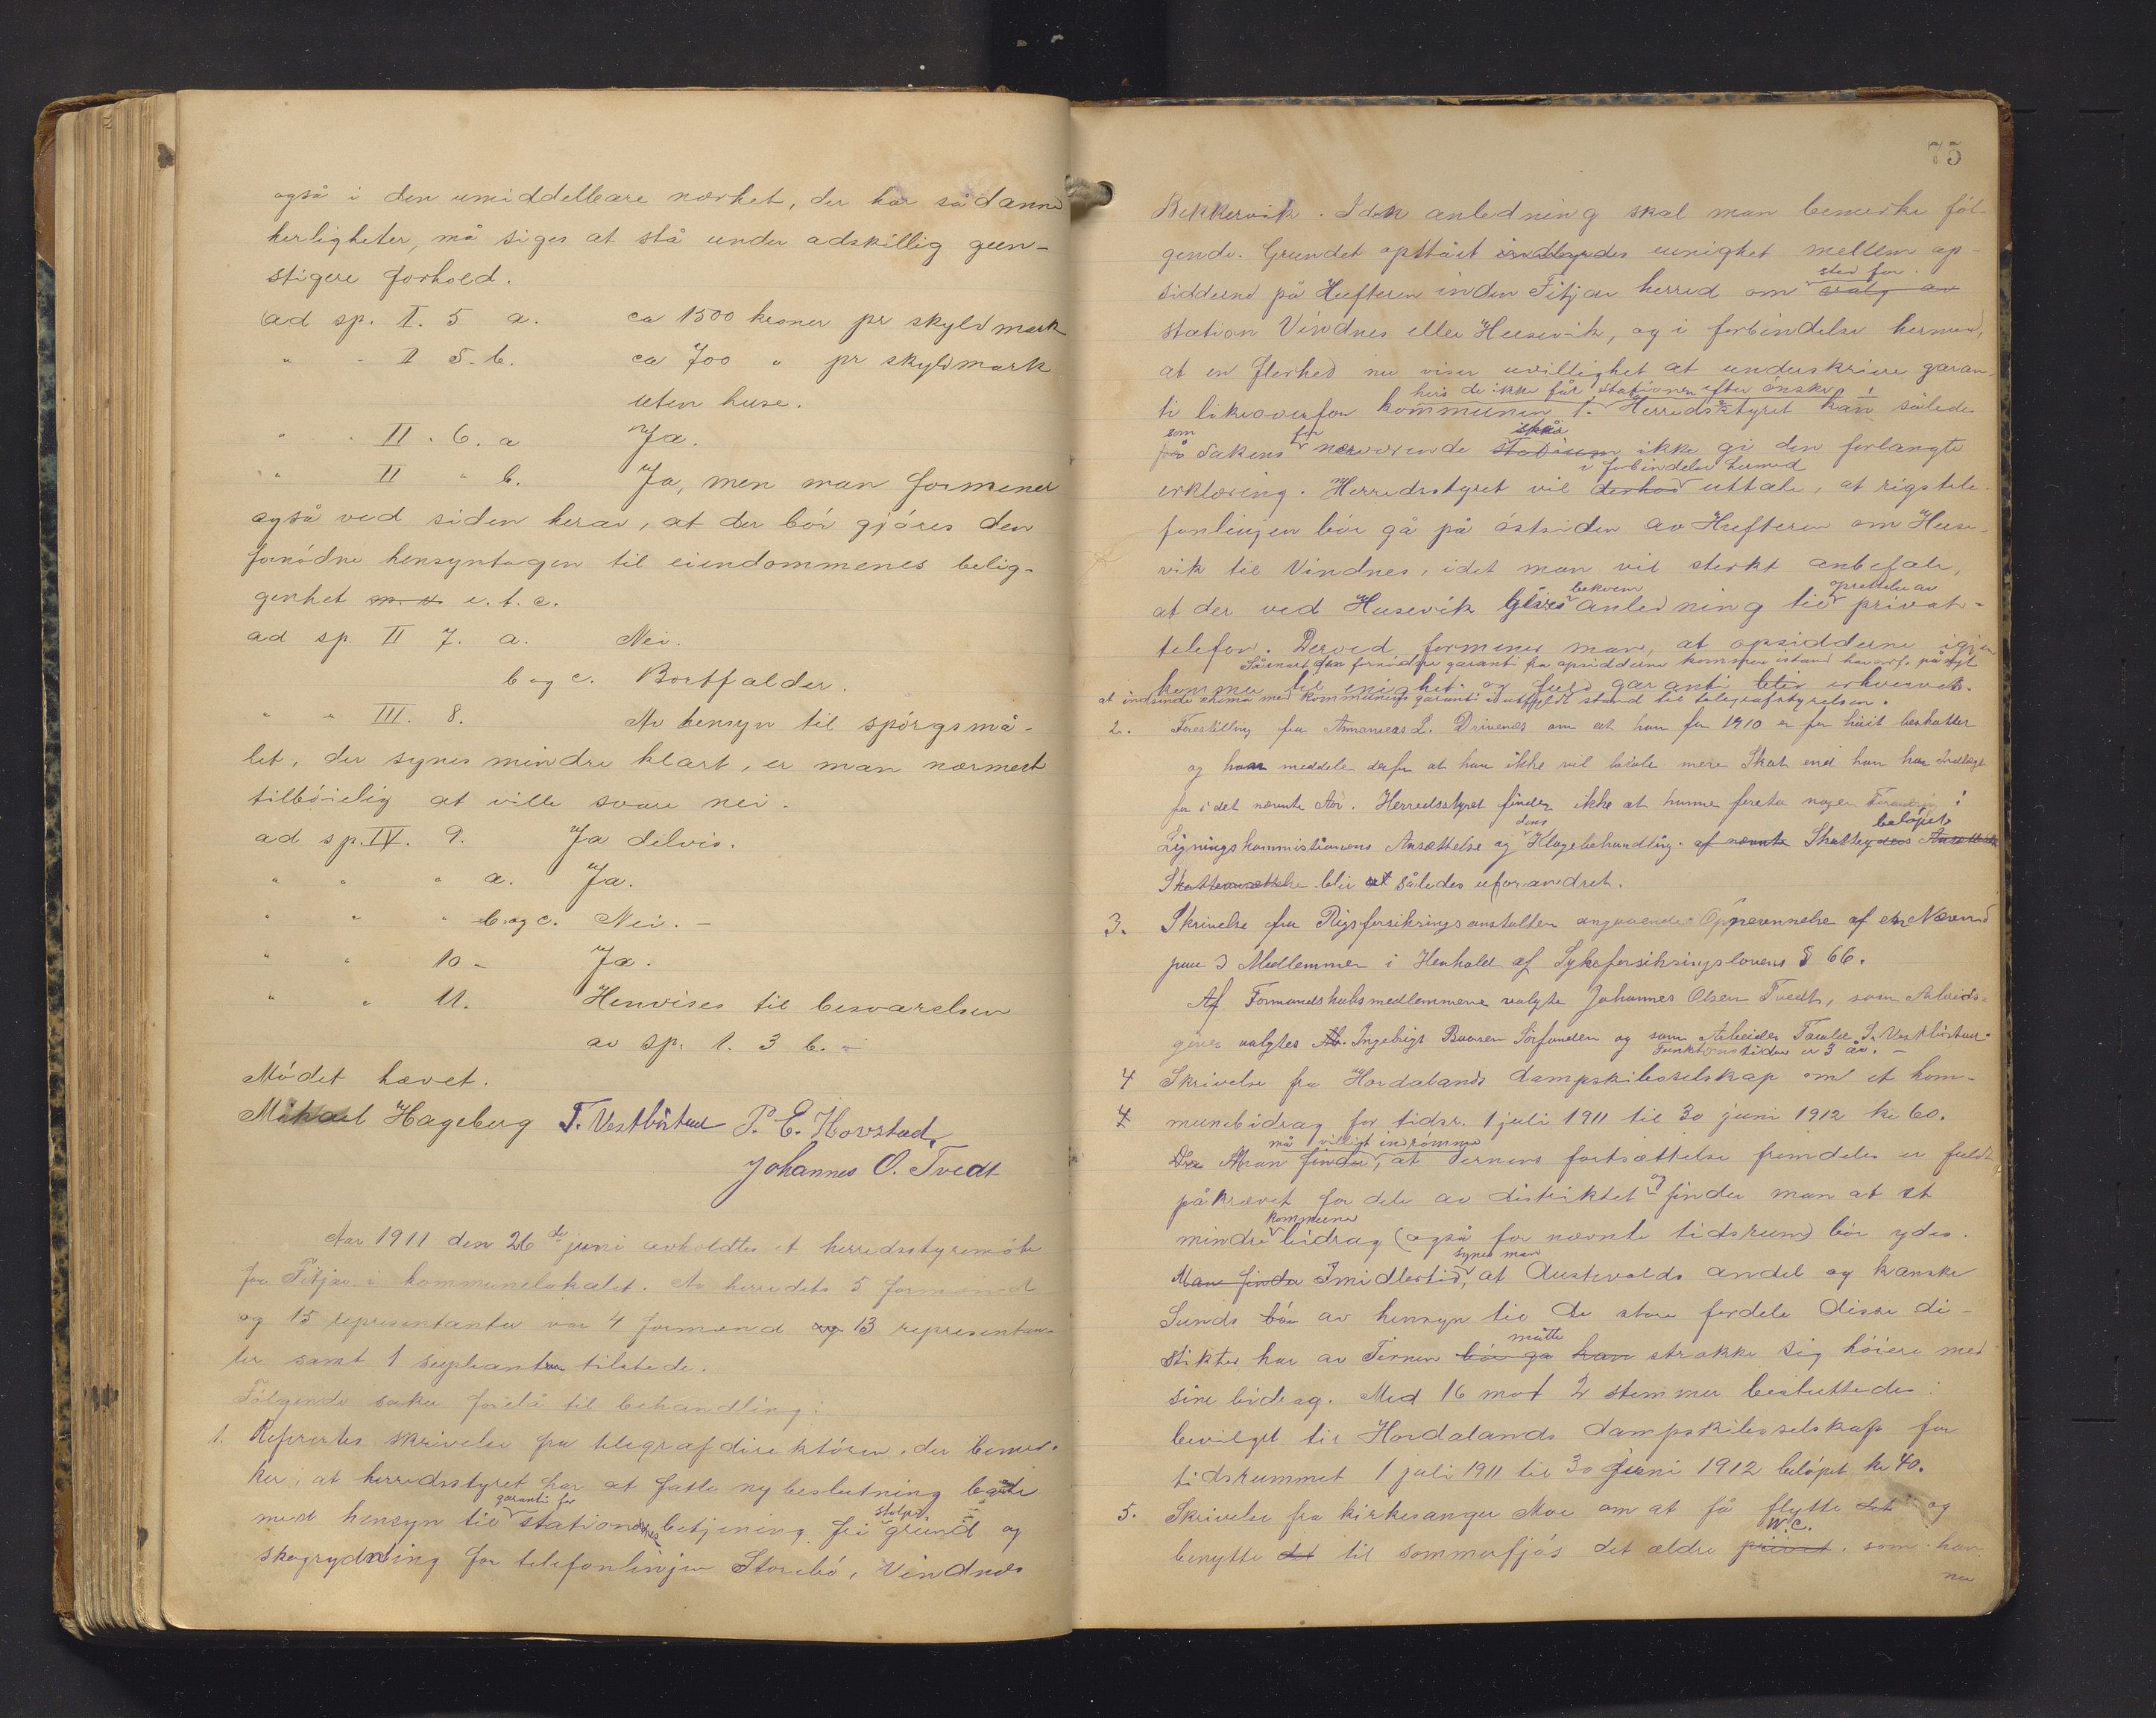 også i den umiddelbare nærhet, der har sådanne
herligheter, må siges at stå under adskillig gun-
stigere forhold.
ad sp. I. 5 a. ca 1500 kroner pr skyldmark
" - I 5. b. ca 700 " pr skyldmark
uten huse.
" . II. 6. a Ja.
" II " b. Ja, men man formener
også ved siden herav, at der bör gjöres den
fornödne hensyntagen til eiendommenes belig-
genhet e. t. c.
ad sp. II 7. a. Nei.
b og c. Bortfalder.
" " III. 8. Av hensyn til spörgsmå-
let, der synes mindre klart, er man nærmest
tilböielig at ville svare nei.
ad sp. IV. 9. Ja delvis.
" " " a. Ja.
" " " b. og c. Nei. -
" " 10 - Ja.
" " 11. Henvises til besvarelsen
av sp. 1. 3 b. -
Mödet hævet.
Mikael Hageberg T. Vestböstad P. E. Hovstad.
Johannes O. Tvedt
Aar 1911 den 26 de juni avholdtes et herredsstyremöte
for Fitjar i kommunelokalet. Av herredets 5 formænd
og 15 repræsentanter var 4 formænd og 13 repræsentan-
ter samt 1 supleant tilstede.
Fölgende saker forelå til behandling:
1. Refertes skrivelse fra telegrafdirektören, der bemer-
ker, at herredsstyret har at fatte ny beslutning både
garanti for stolper,
med hensyn til stationens betjening fri grund og
skogrydning for telefonlinjen Storebö, Vindnes
75
Bekkervik. I den anledning skal man bemerke föl-
gende. Grundet opstået indbyrdes uenighet mellem op-
sted for
sidderne på Hufteren inden Fitjar herred om valg av
station Vindnes eller Husevik, og i forbindelse hermed,
at en flerhed nu viser uvillighet at underskrive garan-
hvis de ikke får stationen efter önske
ti likeoverfor kommunen. Herredsstyret kan således
som for
på sakens nærværende stadium ikke gi den forlangte
i forbindelse hermed
erklæring. Herredsstyret vil derhos uttale, at rigstele-
fonlinjen bör gå på östsiden av Hufteren om Huse-
vik til Vindnes, idet man vil sterkt anbefale,
bekvem oprettelse av
at der ved Husevik gives anledning til privat-
telefon. Derved formener man, at opsidderne igjen
Såsnart den fornödne garanti fra opsidderne kommer istand har ordf. påny
kommer til enighet og fuld garanti blir erhvervet.
at indsende skema med kommunens garanti i utfyldt stand til telegrafstyrelsen.
2. Forestilling fra Annanias L. Drivenes om at han for 1910 er for höit beskattet
og han meddeler derfor at han ikke vil betale mere Skat end han har indlagt
for i det nævnte År. Herredsstyret finder ikke at kunne foreta nogen Forandring i
dens belöpet
Ligningskommisionens Ansættelse og Klagebehandling. af nævnte Skatteyders
Skatteansættelse blir således uforandret.
3. Skrivelse fra Rigsforsikringsanstalten angaaende Oppnevnelse af en Nævnd
paa 3 Medlemmer i Henhold af Sykeforsikringslovens § 66.
Af Formandskabsmedlemmerne valgte Johannes Olsen Tvedt, som Arbeids-
giver valgtes Ingebrigt Baarsen Sörfonden og som Arbeider Tomled S. Vestböstad.
Funktionstiden er 3 år. -
4 Skrivelse fra Hordalands Dampskibsselskap om et kom-
munebidrag for tidsr. 1 juli 1911 til 30 juni 1912 kr 60.
må villigt indrömme
Man finder, at Ternens fortsættelse fremdeles er fuldt
og
påkrævet for dele av distriktet finder man at et
kommune
mindre bidrag (også for nævnte tidsrum) bör ydes.
synes man
Man finder Imidlertid, at Austevolds andel og kanske
Sunds bör av hensyn til de store fordele disse di-
måtte
strikter har av Ternen bör ga kan strække sig höiere med
sine bidrag. Med 16 mot 2 stemmer besluttedes:
bevilget til Hordalands Dampskibsselskap for
tidsrummet 1 juli 1911 til 30 juni 1912 belöpet kr. 40.
5. Skrivelse fra kirkesanger Moe om at få flytte det og
W.C.
benytte det til sommerfjös det ældre privet, som han
nu